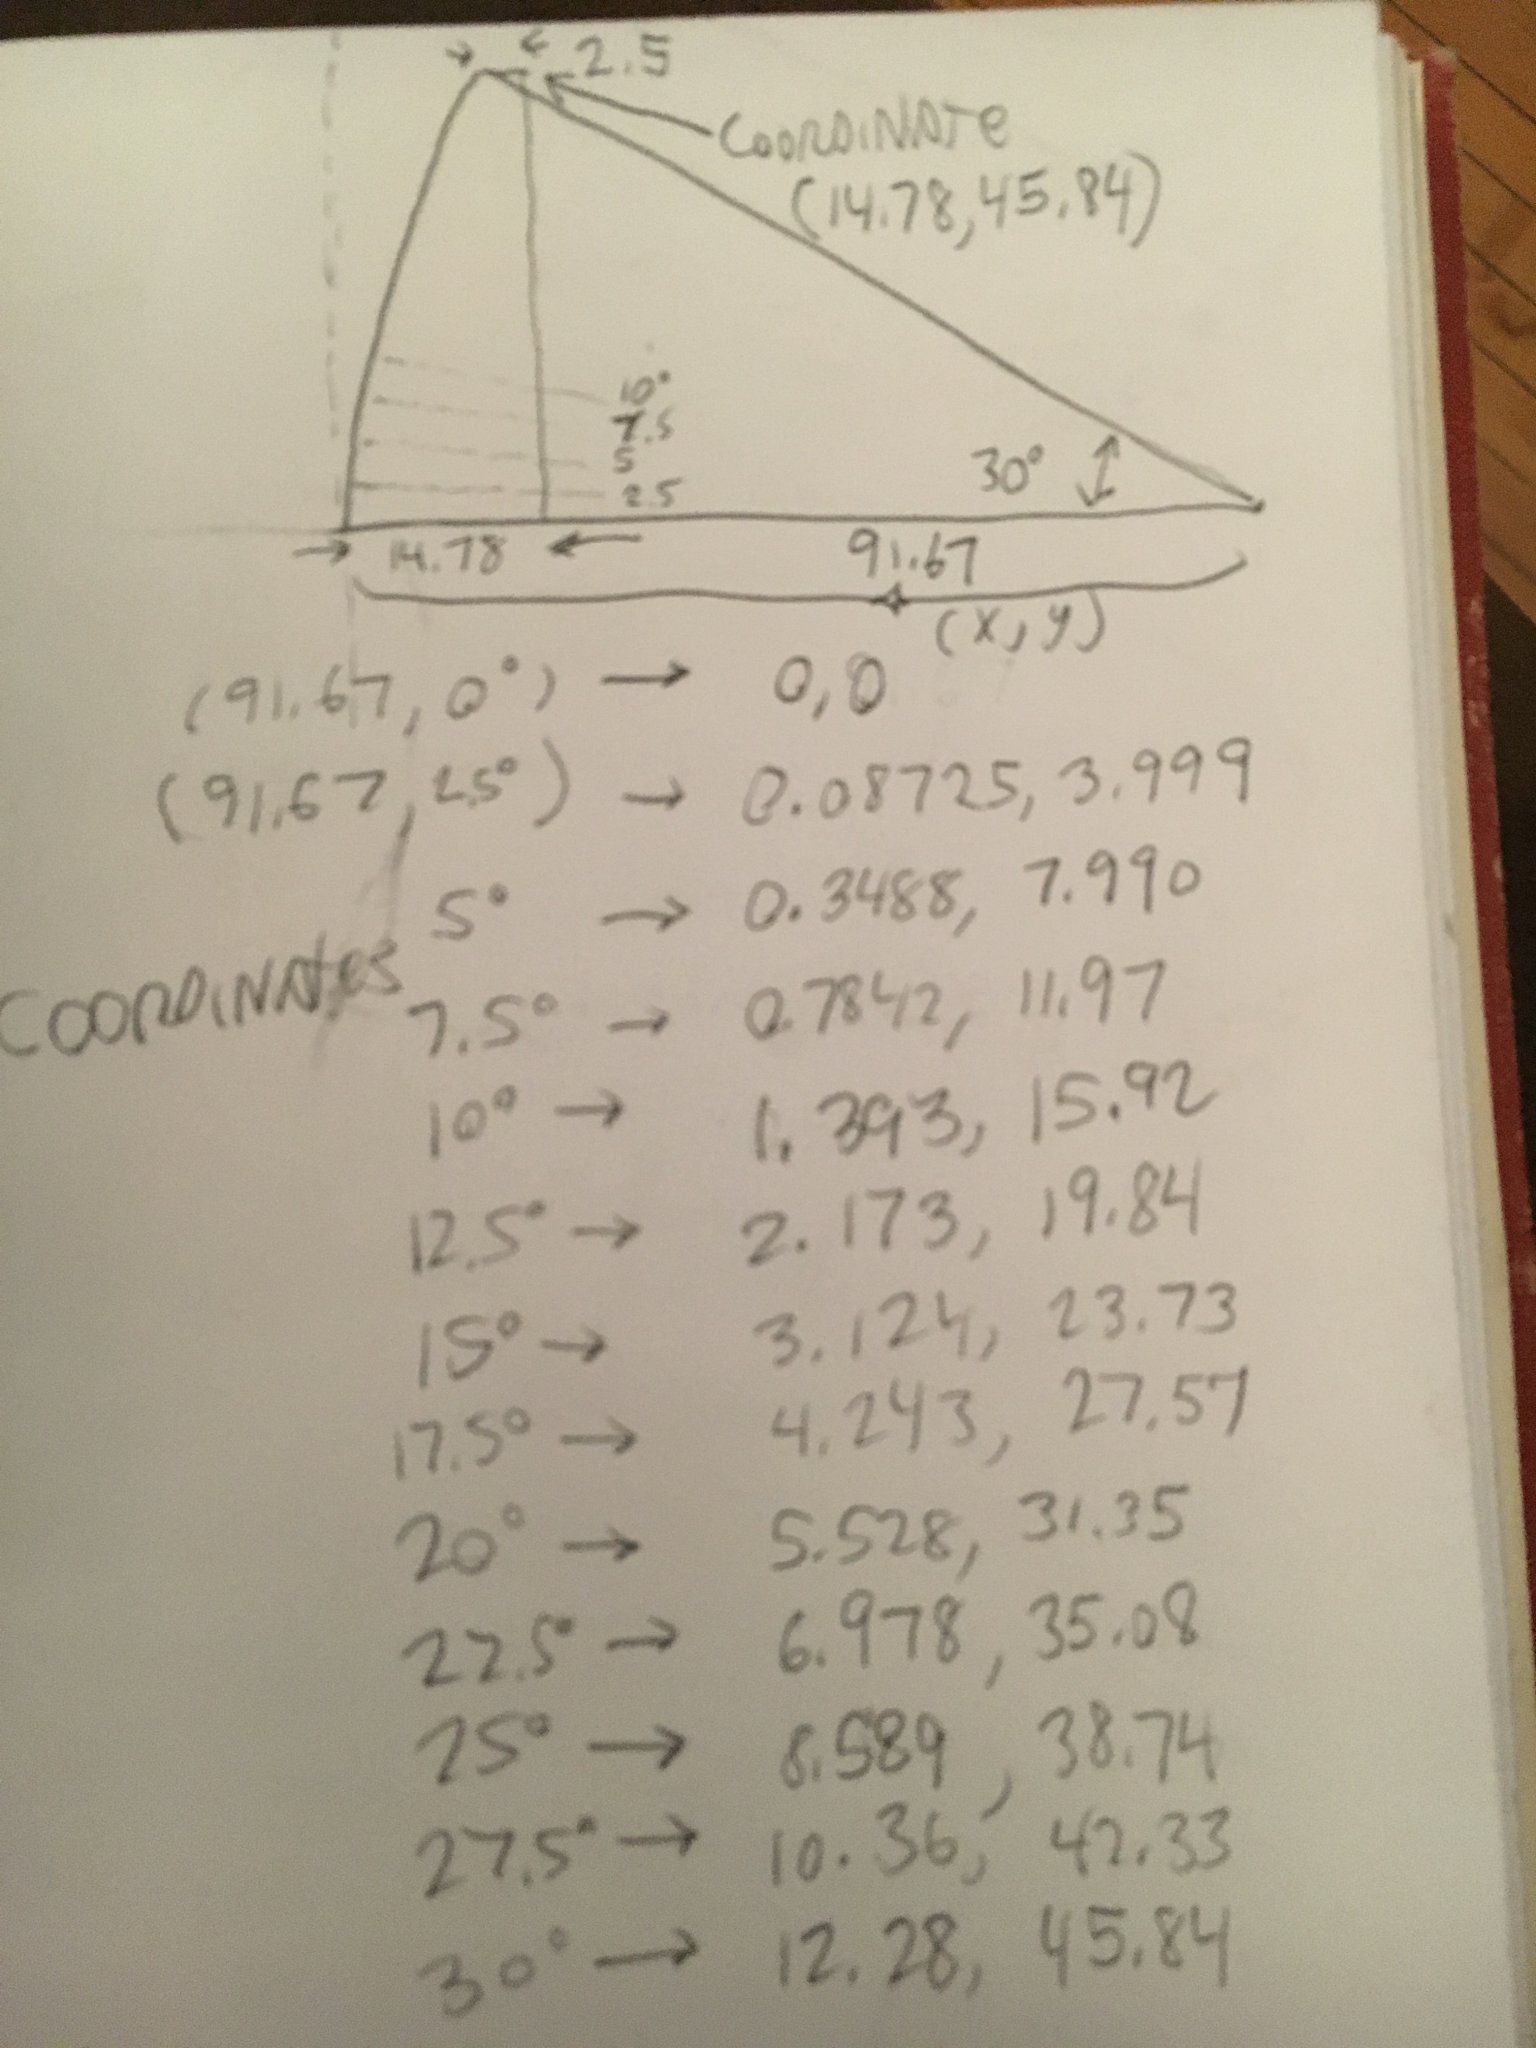 → ← 2.5
COORDINATE
(14.78, 45.84)
10°
7.5
5
2.5
30°
→ 14.78 ←
91.67
(x, y)
(91.67, 0°) → 0, 0
(91.67, 2.5°) → 0.08725, 3.999
5° → 0.3488, 7.990
COORDINATES
7.5° → 0.7842, 11.97
10° → 1.393, 15.92
12.5° → 2.173, 19.84
15° → 3.124, 23.73
17.5° → 4.243, 27.57
20° → 5.528, 31.35
22.5° → 6.978, 35.08
25° → 8.589, 38.74
27.5° → 10.36, 42.33
30° → 12.28, 45.84